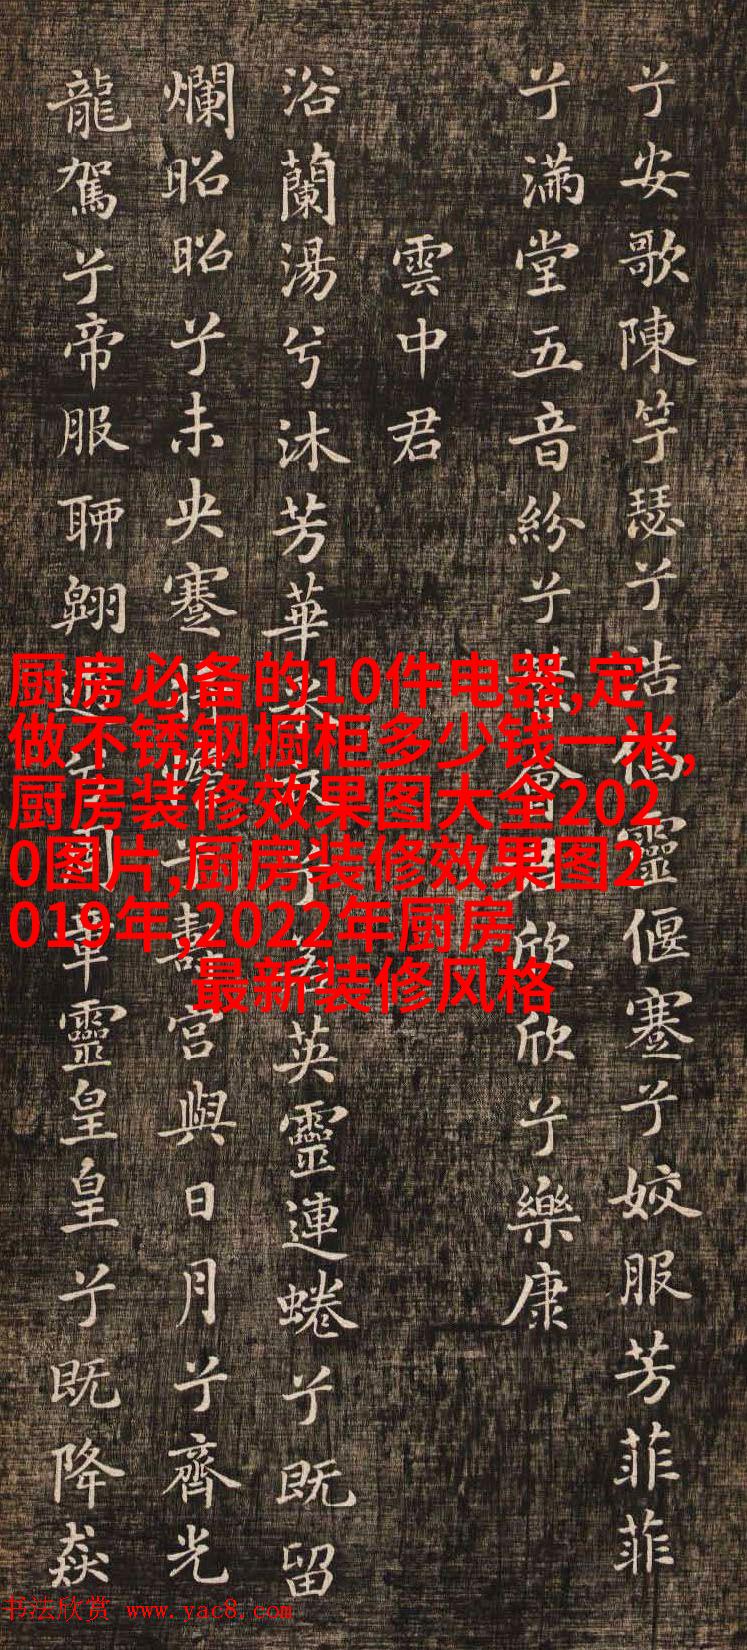 兮安歌陳竽瑟兮浩倡靈偃蹇兮姣服芳菲菲
兮滿堂五音紛兮會君欣欣兮樂康
雲中君
浴蘭湯兮沐芳華采衣兮若英靈連蜷兮既留
爛昭昭兮未央蹇將憺兮壽宮與日月兮齊光
龍駕兮帝服聊翱遊兮周章靈皇皇兮既降猋
厨房必备的10件电器,定
做不锈钢橱柜多少钱一米,
厨房装修效果图大全202
0图片,厨房装修效果图2
019年,2022年厨房
最新装修风格
书法欣赏 www.yac8.com